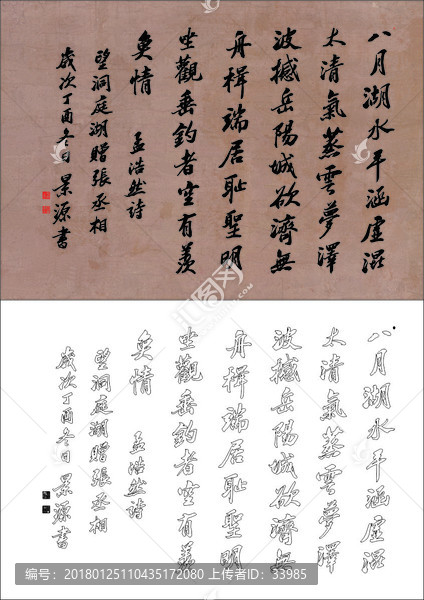 八月湖水平涵虛混
太清氣蒸雲夢澤
波撼岳陽城欲濟無
舟楫端居恥聖明
坐觀垂釣者空有羨
魚情 孟浩然詩
望洞庭湖贈張丞相
歲次丁酉冬日景源書
八月湖水平涵虛混
太清氣蒸雲夢澤
波撼岳陽城欲濟無
舟楫端居恥聖明
坐觀垂釣者空有羨
魚情 孟浩然詩
望洞庭湖贈張丞相
歲次丁酉冬日景源書
编号：20180125110435172080 上传者ID：33985